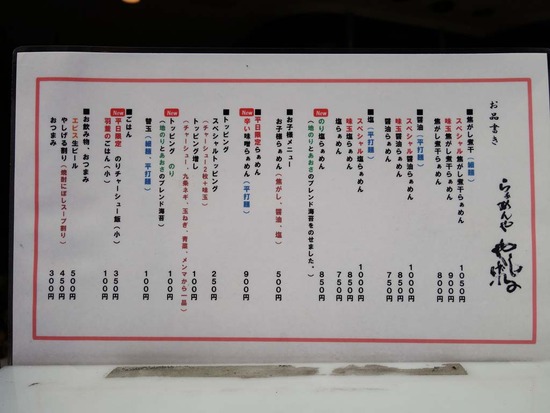 お品書き
らぁめんや
■焦がし煮干（細麺）
スペシャル焦がし煮干らぁめん 1050円
味玉焦がし煮干らぁめん 900円
焦がし煮干らぁめん 800円
■醤油（平打麺）
スペシャル醤油らぁめん 1000円
味玉醤油らぁめん 850円
醤油らぁめん 750円
■塩（平打麺）
スペシャル塩らぁめん 1000円
味玉塩らぁめん 850円
塩らぁめん 750円
New のり塩らぁめん 850円
（地のりとあおさのブレンド海苔をのせました。）
■お子様メニュー
お子様らぁめん（焦がし、醤油、塩） 500円
New ■平日限定らぁめん
辛い味噌らぁめん（平打麺） 900円
■トッピング
スペシャルトッピング 250円
（チャーシュー2枚＋味玉）
トッピング増し 100円
（チャーシュー、九条ネギ、玉ねぎ、青菜、メンマから一品）
New トッピング のり 100円
（地のりとあおさのブレンド海苔）
替玉（細麺、平打麺） 100円
■ごはん
New 平日限定 のりチャーシュー飯（小） 350円
羽釜のごはん（小） 100円
■お飲み物、おつまみ
ヱビス生ビール 500円
やしげる割り（焼酎にぼしスープ割り） 450円
おつまみ 300円